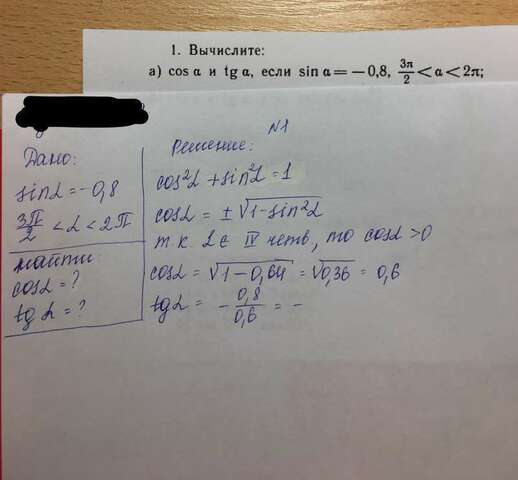 1. Вычислите:
а) cos α и tg α, если sin α = −0,8, 3π/2 < α < 2π;
N1
Дано:
sin α = −0,8
3π/2 < α < 2π
Найти:
cos α = ?
tg α = ?
Решение:
cos²α + sin²α = 1
cos α = ± √(1 − sin²α)
т.к. α ∈ IV четв, то cos α > 0
cos α = √(1 − 0,64) = √0,36 = 0,6
tg α = − 0,8/0,6 = −